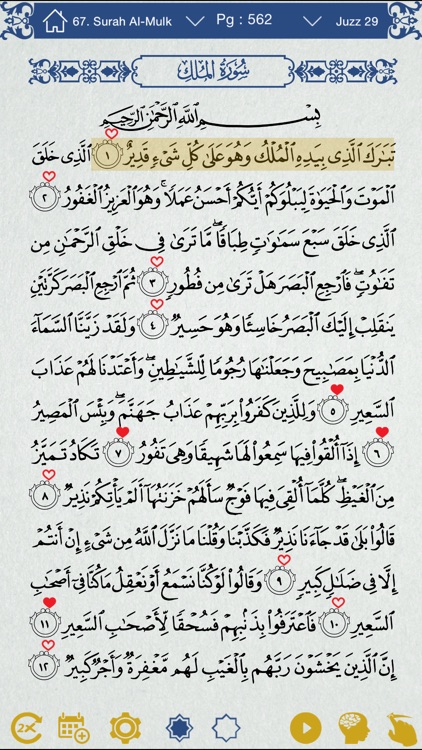 67. Surah Al-Mulk Pg : 562 Juzz 29
سُورَةُ المُلْكِ
بِسْمِ اللَّهِ الرَّحْمَٰنِ الرَّحِيمِ
تَبَٰرَكَ ٱلَّذِى بِيَدِهِ ٱلْمُلْكُ وَهُوَ عَلَىٰ كُلِّ شَىْءٍ قَدِيرٌ ١ ٱلَّذِى خَلَقَ
ٱلْمَوْتَ وَٱلْحَيَوٰةَ لِيَبْلُوَكُمْ أَيُّكُمْ أَحْسَنُ عَمَلًا ۚ وَهُوَ ٱلْعَزِيزُ ٱلْغَفُورُ ٢
ٱلَّذِى خَلَقَ سَبْعَ سَمَٰوَٰتٍ طِبَاقًا ۖ مَّا تَرَىٰ فِى خَلْقِ ٱلرَّحْمَٰنِ مِن
تَفَٰوُتٍ ۖ فَٱرْجِعِ ٱلْبَصَرَ هَلْ تَرَىٰ مِن فُطُورٍ ٣ ثُمَّ ٱرْجِعِ ٱلْبَصَرَ كَرَّتَيْنِ
يَنقَلِبْ إِلَيْكَ ٱلْبَصَرُ خَاسِئًا وَهُوَ حَسِيرٌ ٤ وَلَقَدْ زَيَّنَّا ٱلسَّمَآءَ
ٱلدُّنْيَا بِمَصَٰبِيحَ وَجَعَلْنَٰهَا رُجُومًا لِّلشَّيَٰطِينِ ۖ وَأَعْتَدْنَا لَهُمْ عَذَابَ
ٱلسَّعِيرِ ٥ وَلِلَّذِينَ كَفَرُوا۟ بِرَبِّهِمْ عَذَابُ جَهَنَّمَ ۖ وَبِئْسَ ٱلْمَصِيرُ
٦ إِذَآ أُلْقُوا۟ فِيهَا سَمِعُوا۟ لَهَا شَهِيقًا وَهِىَ تَفُورُ ٧ تَكَادُ تَمَيَّزُ
مِنَ ٱلْغَيْظِ ۖ كُلَّمَآ أُلْقِىَ فِيهَا فَوْجٌ سَأَلَهُمْ خَزَنَتُهَآ أَلَمْ يَأْتِكُمْ نَذِيرٌ ٨
قَالُوا۟ بَلَىٰ قَدْ جَآءَنَا نَذِيرٌ فَكَذَّبْنَا وَقُلْنَا مَا نَزَّلَ ٱللَّهُ مِن شَىْءٍ إِنْ أَنتُمْ
إِلَّا فِى ضَلَٰلٍ كَبِيرٍ ٩ وَقَالُوا۟ لَوْ كُنَّا نَسْمَعُ أَوْ نَعْقِلُ مَا كُنَّا فِىٓ أَصْحَٰبِ
ٱلسَّعِيرِ ١٠ فَٱعْتَرَفُوا۟ بِذَنۢبِهِمْ فَسُحْقًا لِّأَصْحَٰبِ ٱلسَّعِيرِ ١١
إِنَّ ٱلَّذِينَ يَخْشَوْنَ رَبَّهُم بِٱلْغَيْبِ لَهُم مَّغْفِرَةٌ وَأَجْرٌ كَبِيرٌ ١٢
2X